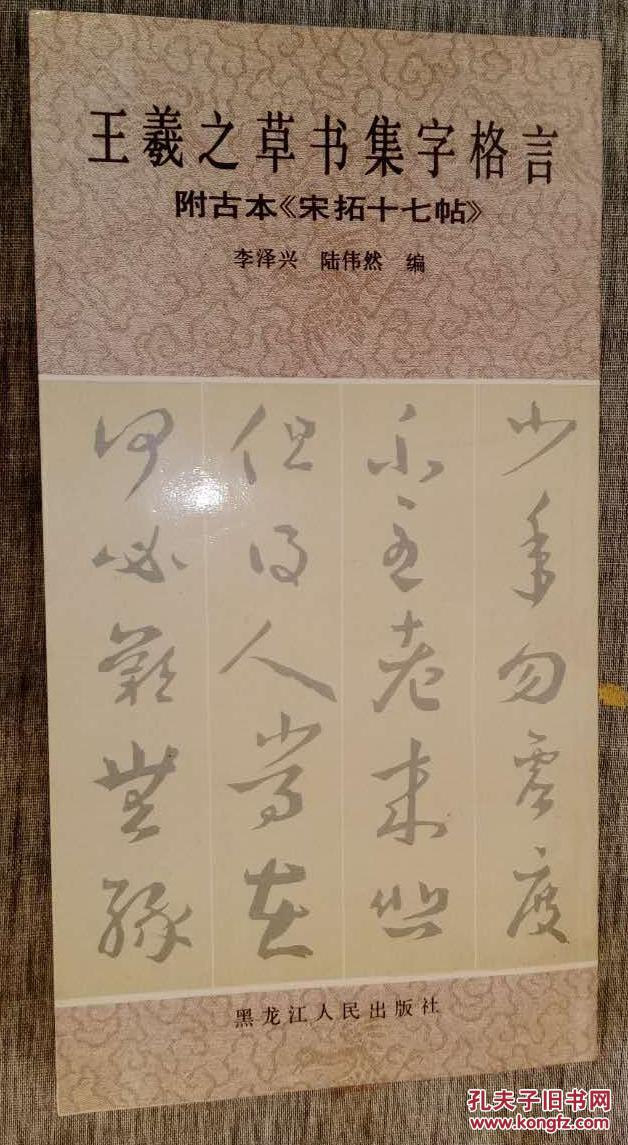 王羲之草书集字格言
附古本《宋拓十七帖》
李泽兴 陆伟然 编
少年勿虚度
至老来
但得人常在
何必歎無緣
黑龙江人民出版社
孔夫子旧书网
www.kongfz.com